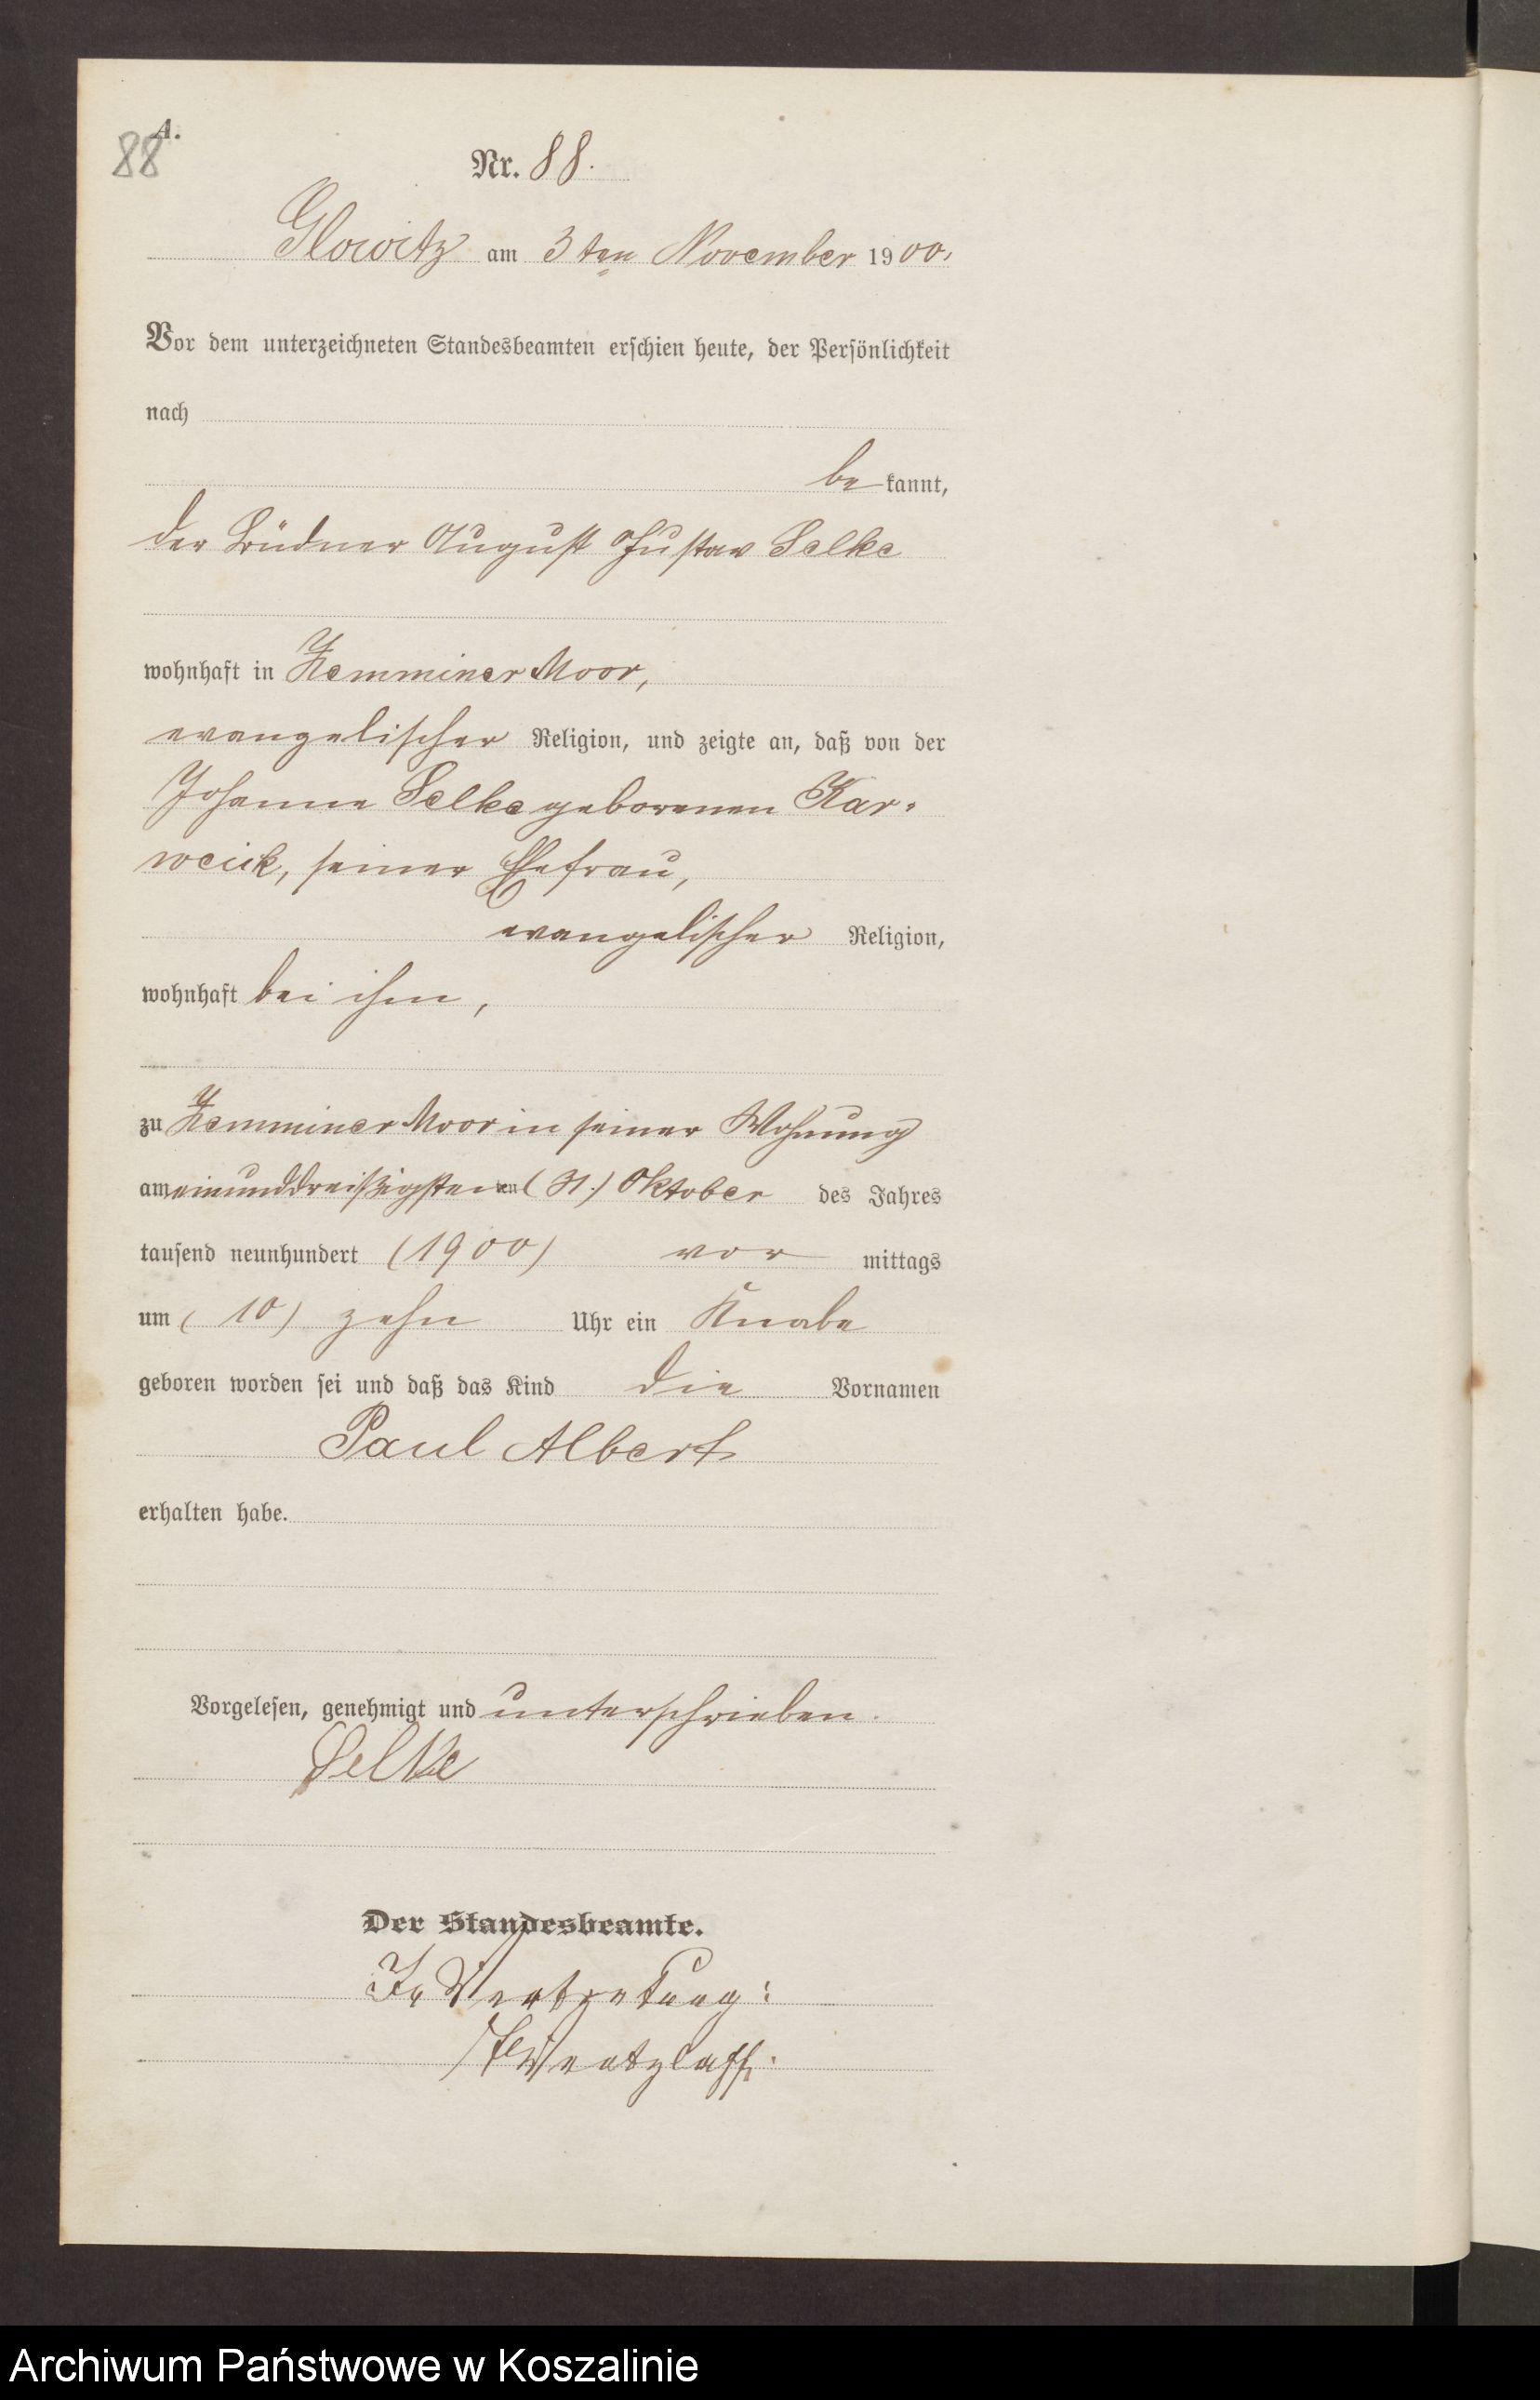 A.
88
Nr. 88.
Glowitz am 3ten November 1900.
Vor dem unterzeichneten Standesbeamten erschien heute, der Persönlichkeit
nach
be kannt,
der Büdner August Gustav Selke
wohnhaft in Zemminer Moor,
evangelischer Religion, und zeigte an, daß von der
Johanne Selke geborenen Kar-
weick, seiner Ehefrau,
evangelischer Religion,
wohnhaft bei ihm,
zu Zemminer Moor in seiner Wohnung
am einunddreißigsten (31.) Oktober des Jahres
tausend neunhundert (1900) vor mittags
um (10) zehn Uhr ein Knabe
geboren worden sei und daß das Kind die Vornamen
Paul Albert
erhalten habe.
Vorgelesen, genehmigt und unterschrieben.
Selke
Der Standesbeamte.
In Vertretung:
Wentzlaff.
Archiwum Państwowe w Koszalinie